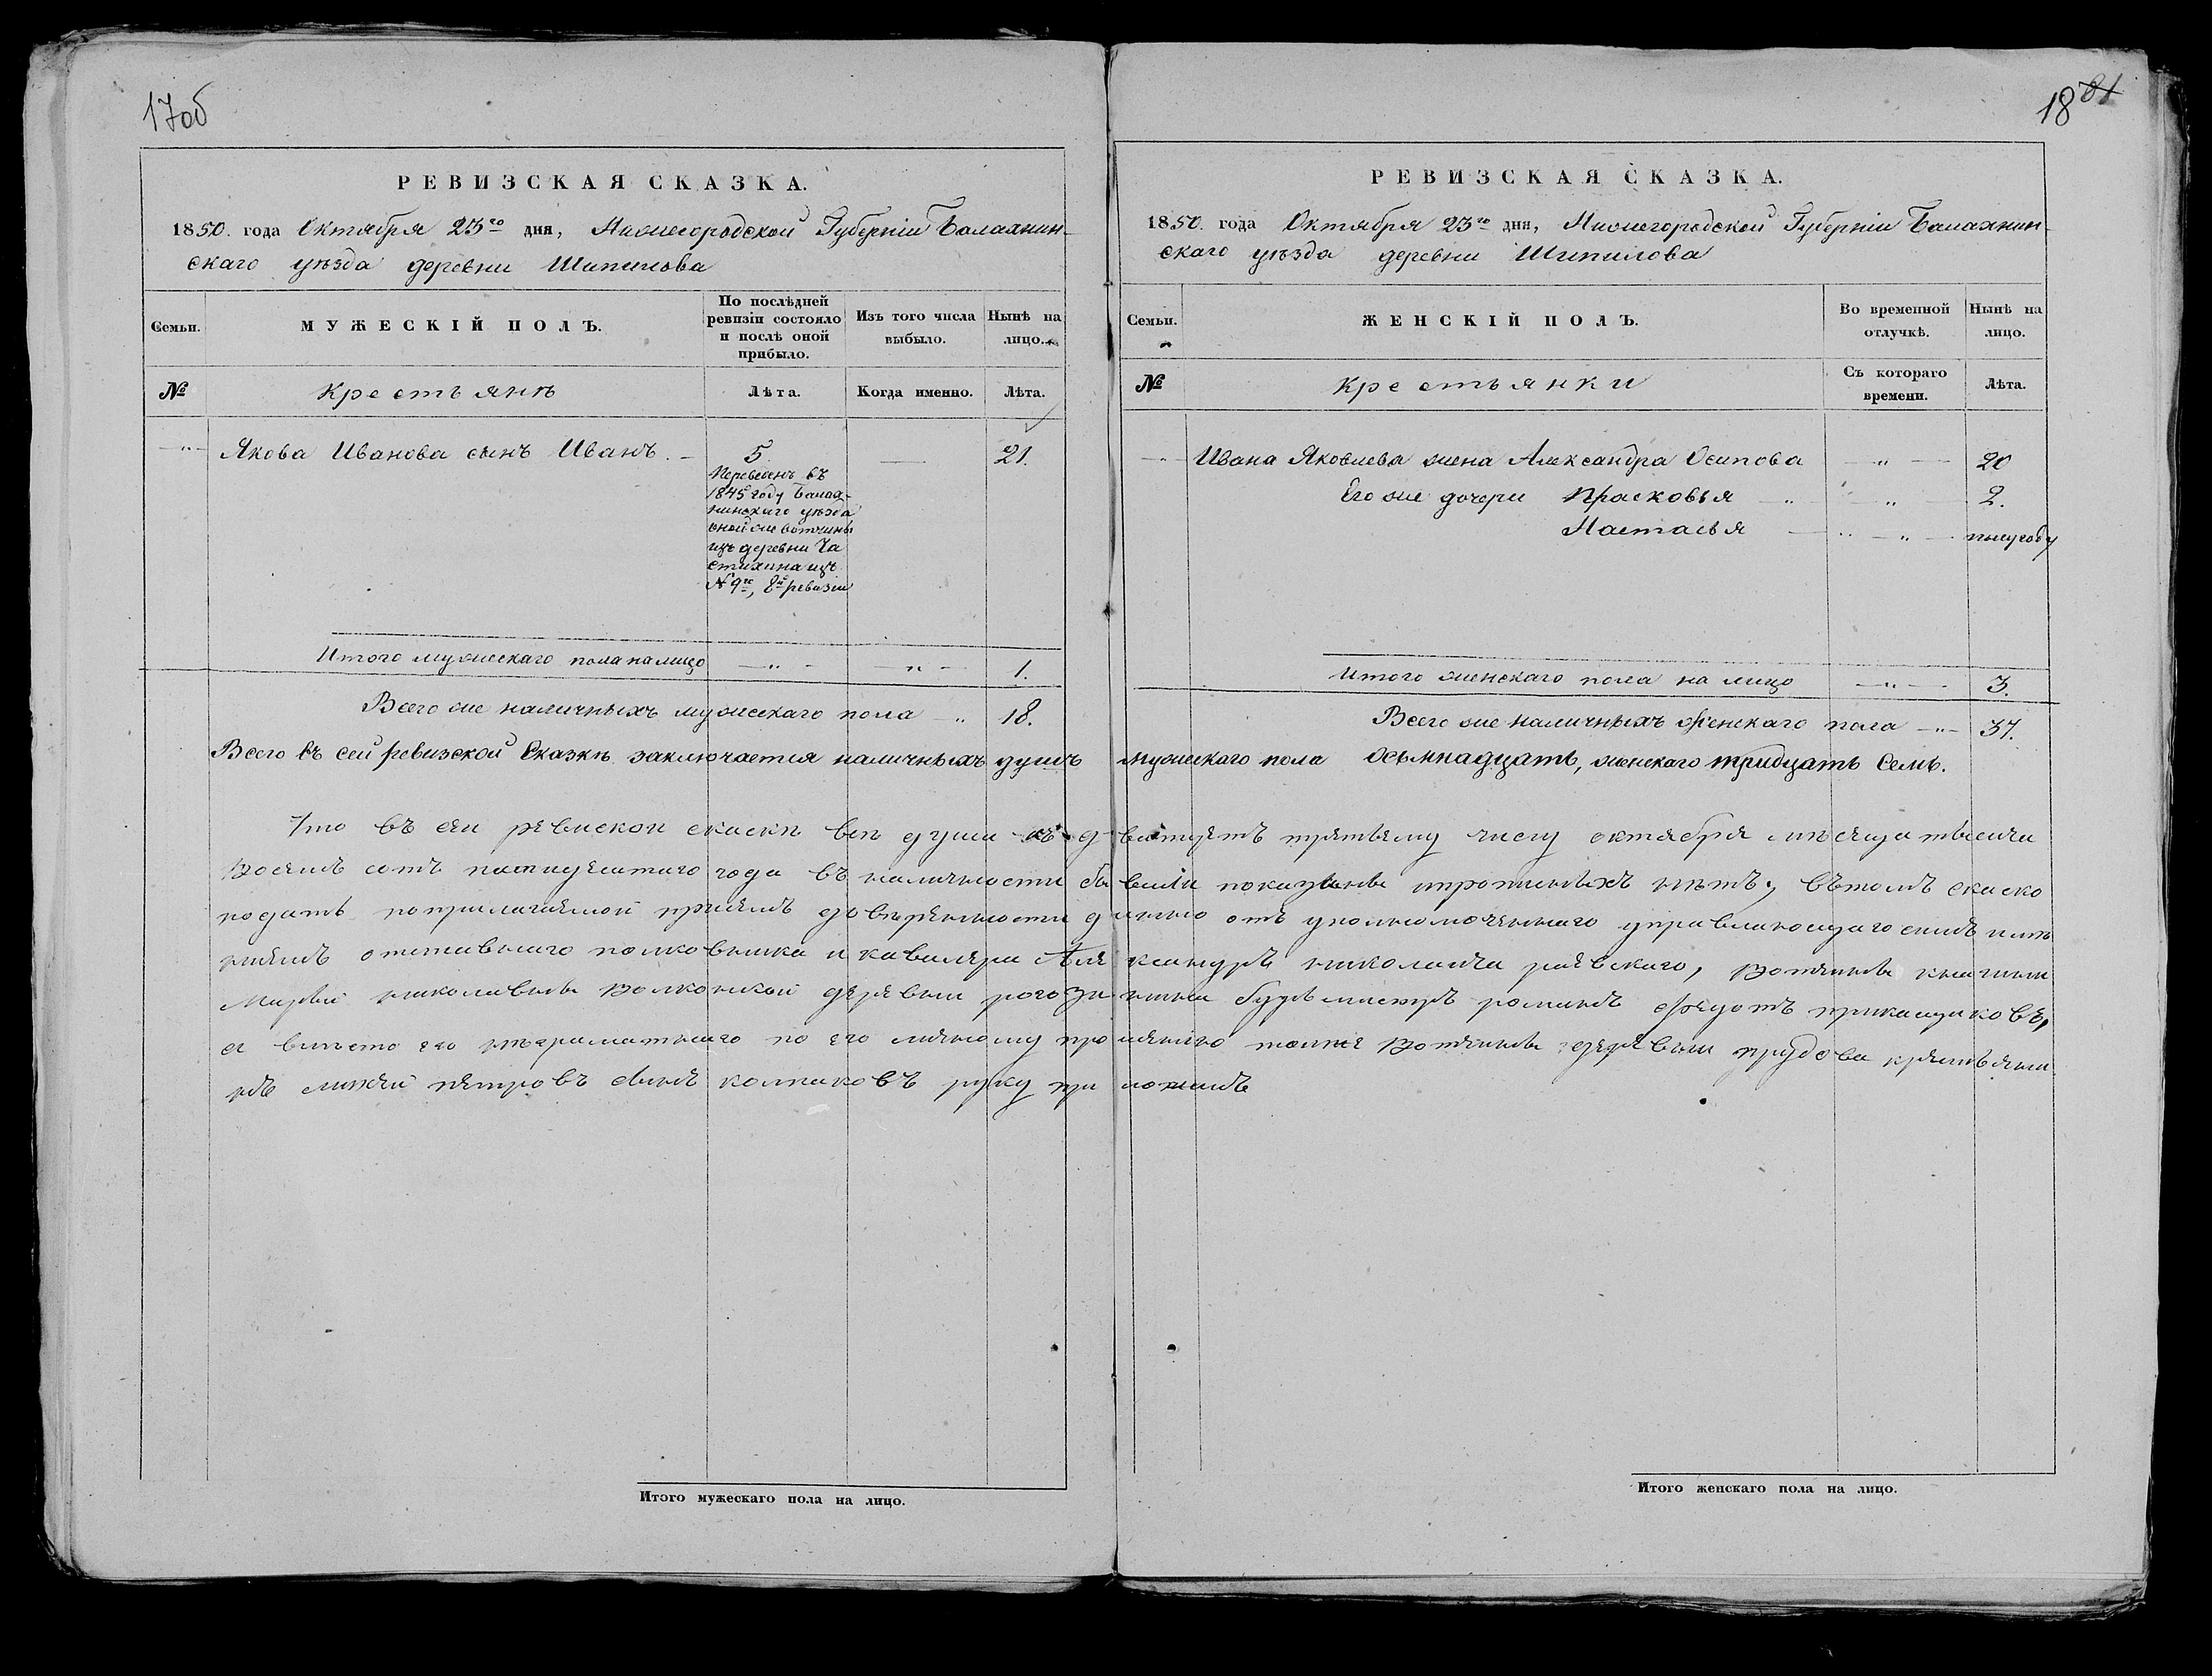 17об
РЕВИЗСКАЯ СКАЗКА.
1850. года Октября 23го дня, Нижегородской Губерніи Балахнин-
скаго уѣзда деревни Шипилова
Семьи.
МУЖЕСКІЙ ПОЛЪ.
По послѣдней
ревизіи состояло
и послѣ оной
прибыло.
Изъ того числа
выбыло.
Нынѣ на
лицо.
№
Крестьянѣ
Лѣта.
Когда именно.
Лѣта.
Якова Иванова сынъ Иванъ.
5
21.
Переведенъ въ
1845 году Балах-
нинскаго уѣзда
оной же вотчины
изъ деревни Ча
стихина изъ
№ 9го, 8й ревизіи
Итого мужескаго пола налицо
1.
Всего же наличныхъ мужескаго пола
18.
18 81
РЕВИЗСКАЯ СКАЗКА.
1850. года Октября 23го дня, Нижегородской Губерніи Балахнин-
скаго уѣзда деревни Шипилова
Семьи.
ЖЕНСКІЙ ПОЛЪ.
Во временной
отлучкѣ.
Нынѣ на
лицо.
№
Крестьянки
Съ котораго
времени.
Лѣта.
Ивана Яковлева жена Александра Осипова
20
Его же дочери Прасковья
2.
Настасья
полугоду
Итого женскаго пола на лицо
3.
Всего же наличныхъ женскаго пола
37.
Всего въ сей ревизской Сказкѣ заключается наличныхъ душъ мужескаго пола осьмнадцать, женскаго тридцать семь.
Что въ сеи ревиской скаски всѣ души къ дватцеть третьему числу октября мѣсеца тысеча
восемъ сотъ патидесатаго года въ наличности бывшіи показаны ипротчиныхъ нѣтъ, вътомъ скаско
подать поприлагаемой присемъ довѣренности данно отъ уполномоченнаго управляющаго симъ имѣ
ниемъ отставнаго полковника и кавалера Александръ николаича раевскаго, вотчины княгини
Марьи николавны волконской деревни рогозинина бурьмистръ романъ Федотъ прикащиковъ,
а вмѣсто его неграматнаго по его личному прошению тойже вотчины деревни прудова крестьяни
нъ петровъ сынъ колпаковъ руку приложилъ
Итого мужескаго пола на лицо.
Итого женскаго пола на лицо.